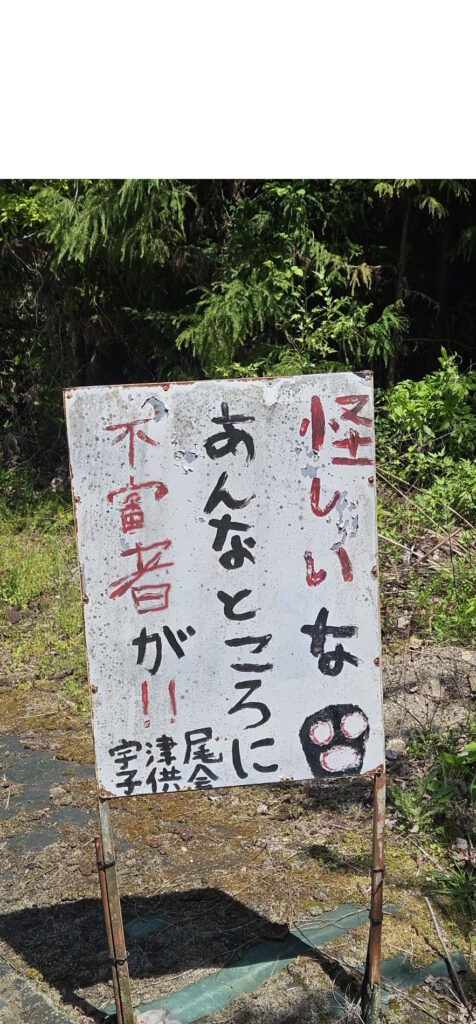 怪しいな
あんなところに
不審者が!!
宇津尾
子供会